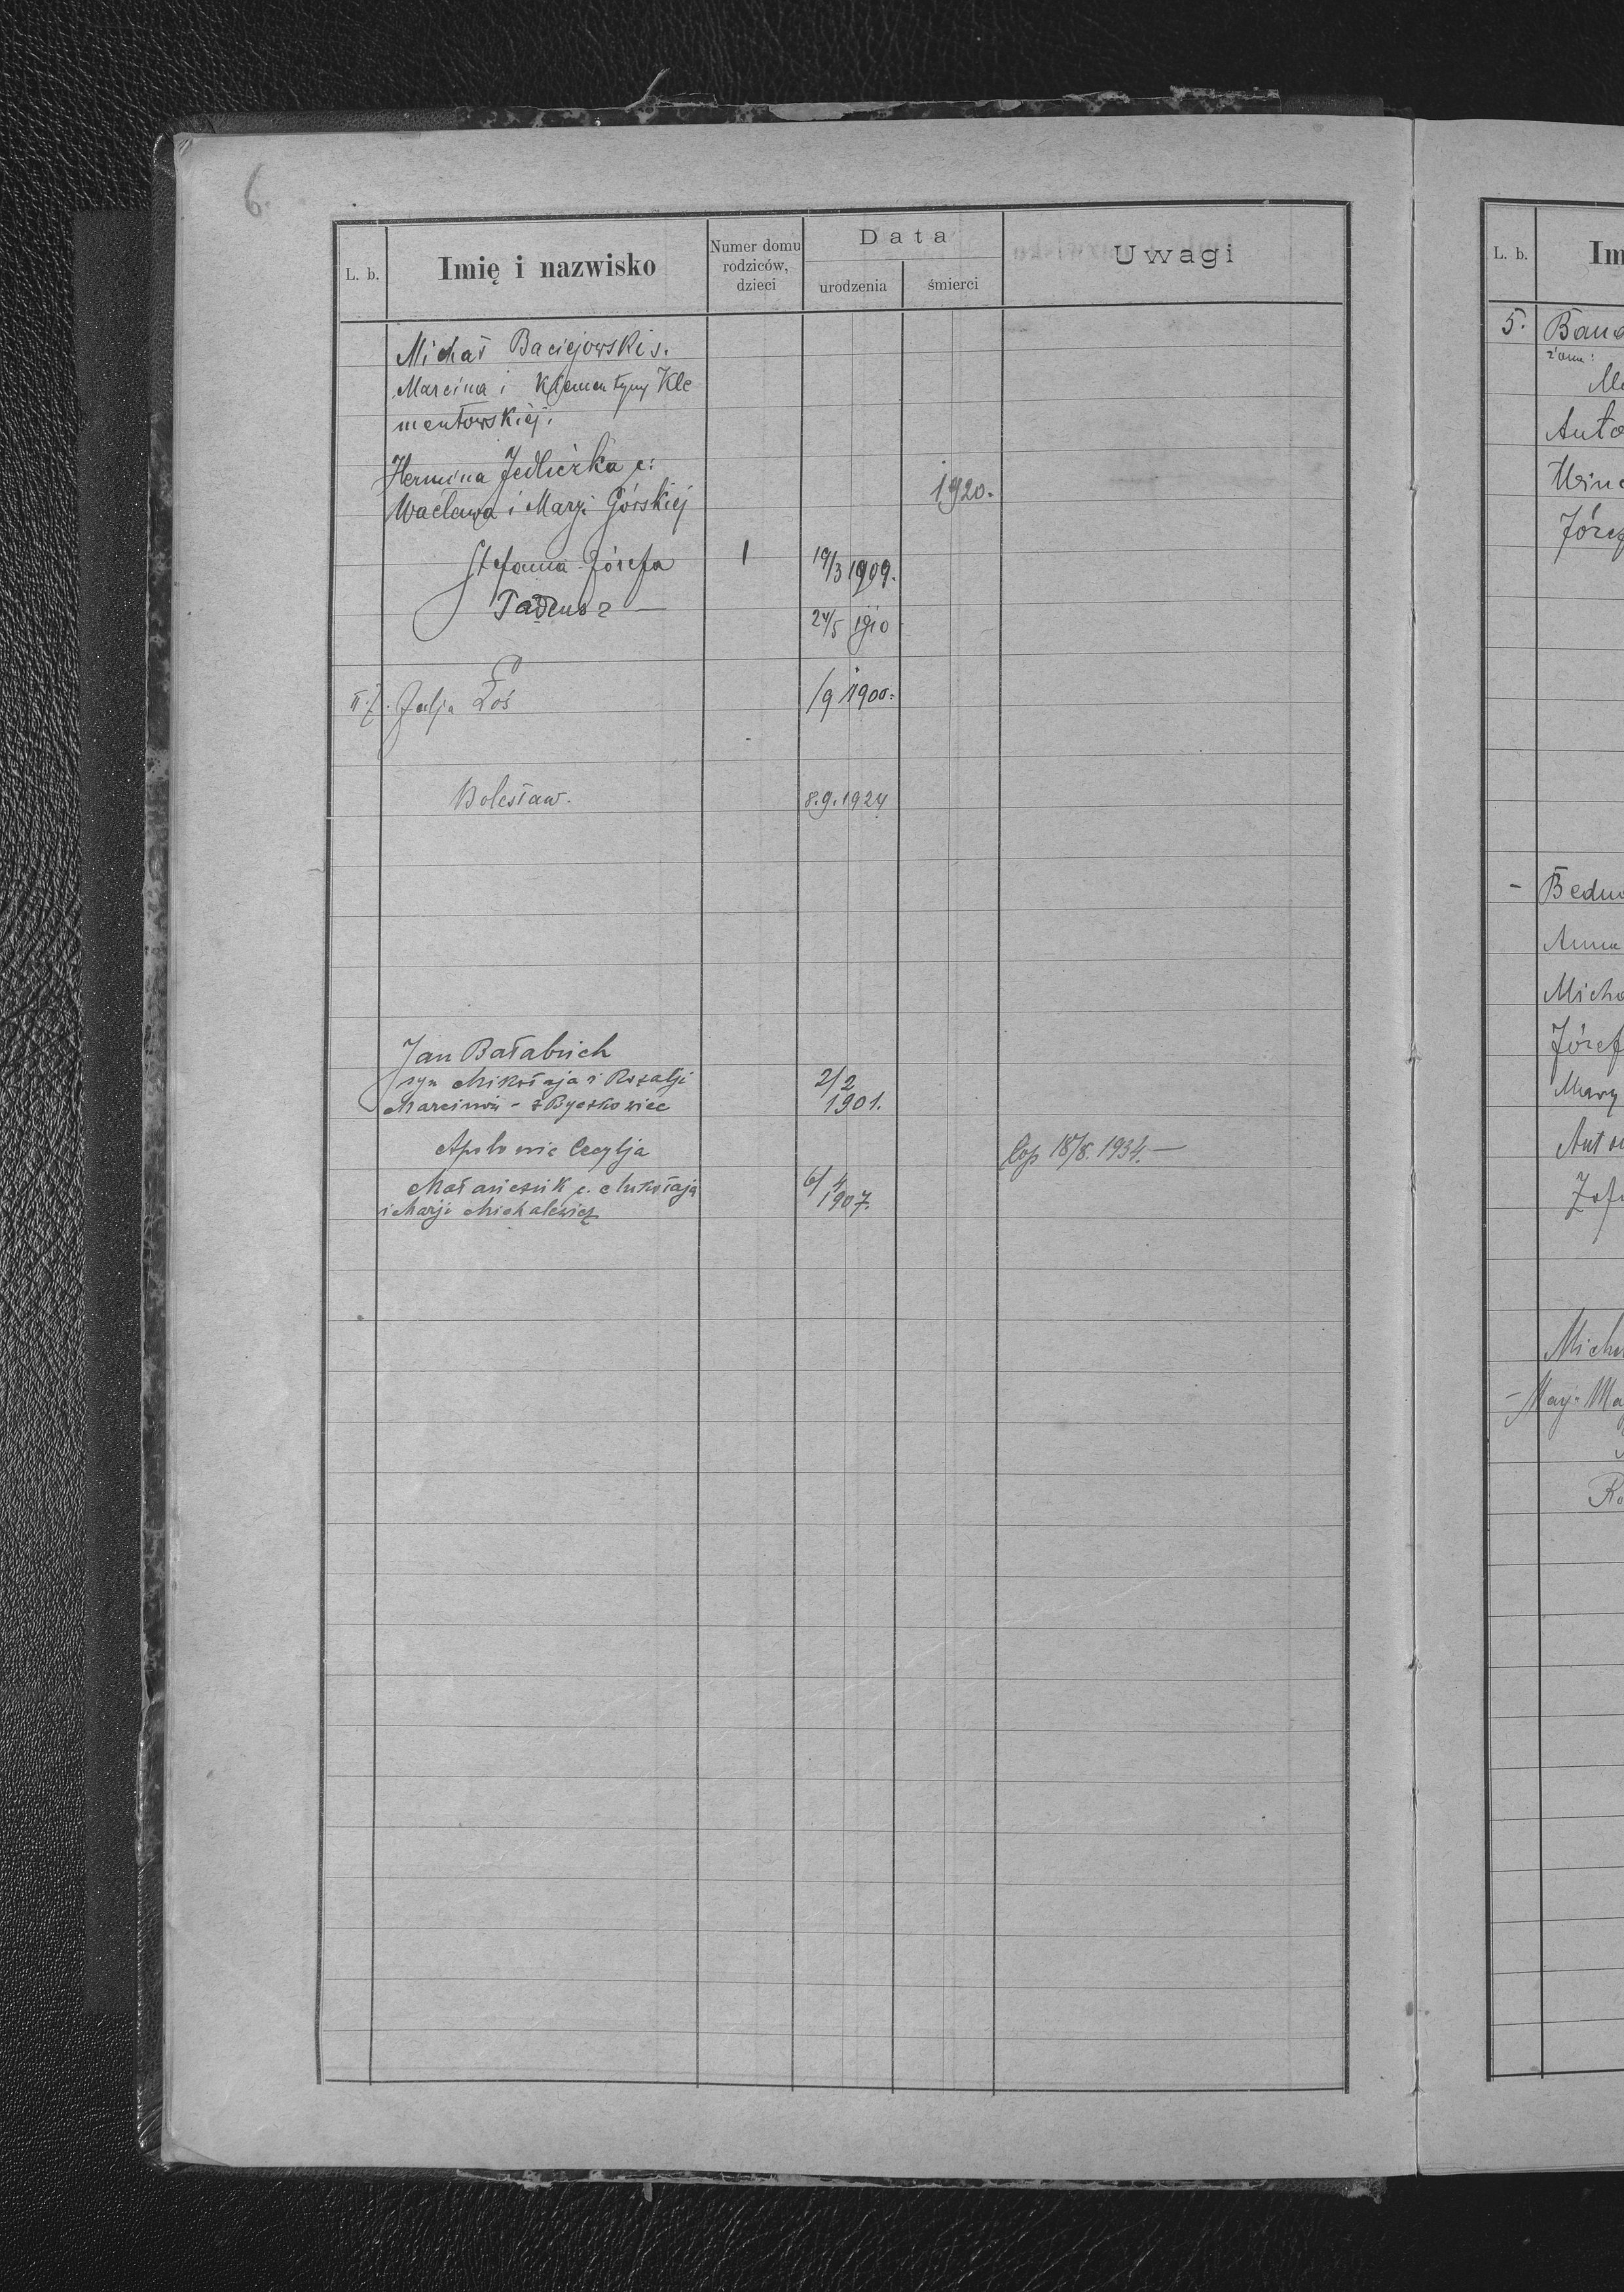 6.
L. b.
Imię i nazwisko
Numer domu rodziców, dzieci
Data
urodzenia
śmierci
Uwagi
Michał Baciejowski s.
Marcina i Klementyny Kle
mentowskiej.
Hermina Jedlicżka c:
Wacława i Maryi Górskiej
1920.
Stefania Józefa
1
19/3 1909.
Tadeusz —
24/5 1910
II. ż. Julja Łoś
/9 1900.
Bolesław.
8.9.1924
Jan Bałabuch
syn Mikołaja i Rozalji
2/2
Marciniw - z Byczkowiec
1901.
Apolonia Cecylja
Cop 18/8. 1934. —
c. Mikołaja
6/4
i Marji Michalewicz
1907.
L. b.
Im
5.
Bana
żona:
Anto
Józef
-
Bedna
Anna
Micha
Józef
Mary
Anton
Zofi
Micha
- Marj. Ma
Ro